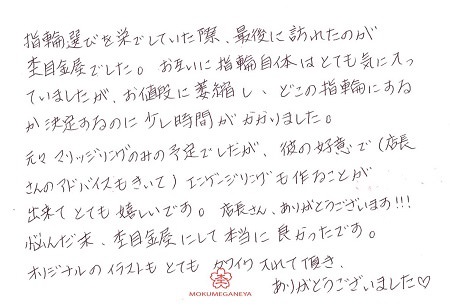 指輪選びを楽しんでしていた際、最後に訪れたのが
杢目金屋でした。お互いに指輪自体はとても気に入っ
ていましたが、お値段に萎縮し、どこの指輪にする
か決定するのに少し時間がかかりました。
元々マリッジリングのみの予定でしたが、彼の好意で(店長
さんのアドバイスもきいて)エンゲージリングも作ることが
出来てとても嬉しいです。店長さん、ありがとうございます!!!
悩んだ末、杢目金屋にして本当に良かったです。
オリジナルのイラストもとてもカワイク入れて頂き、
ありがとうございました♡
MOKUMEGANEYA